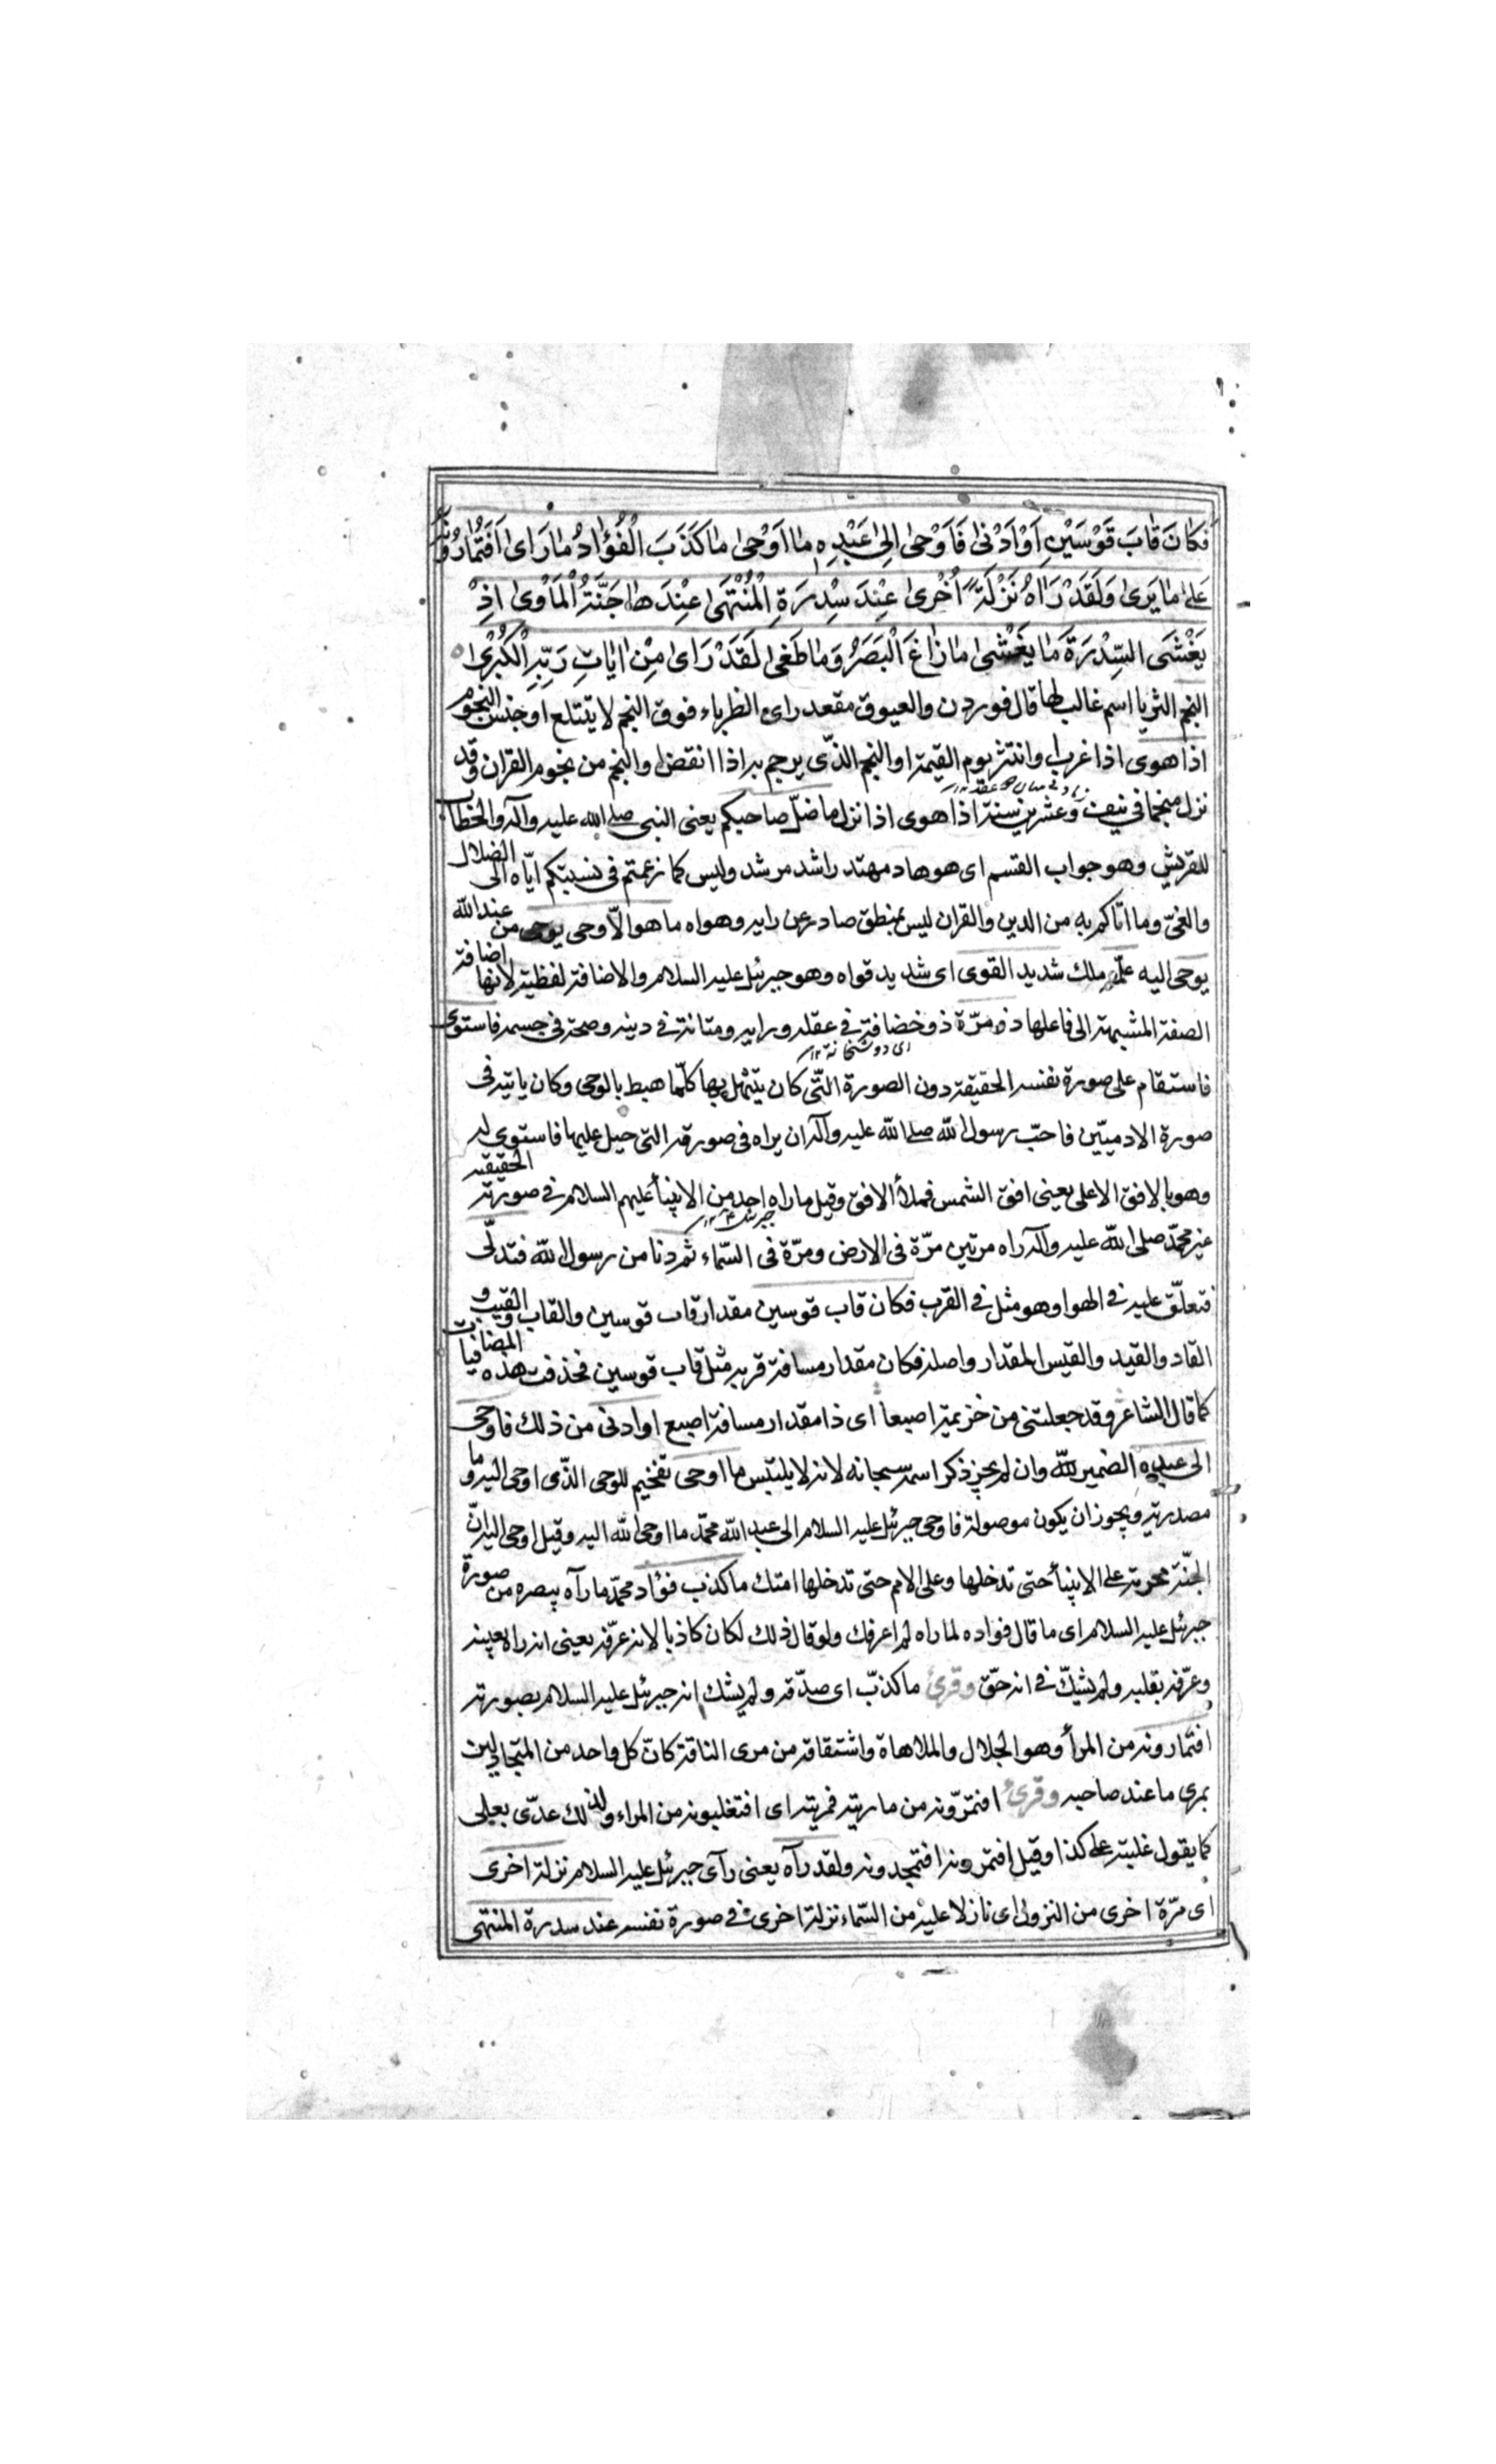 فَكَانَ قَابَ قَوْسَيْنِ اَوْ اَدْنٰى فَاَوْحٰى اِلٰى عَبْدِهٖ مٰا اَوْحٰى مٰا كَذَبَ الْفُؤٰادُ مٰا رَاٰى اَفَتُمٰارُونَهُ
عَلٰى مٰا يَرٰى وَلَقَدْ رَاٰهُ نَزْلَةً اُخْرٰى عِنْدَ سِدْرَةِ الْمُنْتَهٰى عِنْدَهٰا جَنَّةُ الْمَأْوٰى اِذْ
يَغْشَى السِّدْرَةَ مٰا يَغْشٰى مٰا زٰاغَ الْبَصَرُ وَمٰا طَغٰى لَقَدْ رَاٰى مِنْ اٰيٰاتِ رَبِّهِ الْكُبْرٰى
النجم الثريا اسم غالب لها قال فوردن والعيوق مقعد رابئ الظرباء فوق النجم لا يتتلع او جنس النجوم
اذا هوى اذا غرب او انتثر يوم القيمة او النجم الذّى يرجم به اذا انقض او النجم من نجوم القران وقد
نزل منجما فى نيف وعشرين سنة اذا هوى اذا نزل ما ضلّ صاحبكم يعنى النبى صلى الله عليه وآله والخطاب
للقريش وهو جواب القسم اى هو هاد مهتد راشد مرشد وليس كما زعمتم فى نسبتكم ايّاه الى الضلال
والغىّ وما اتاكم به من الدين والقران ليس بمنطق صادر عن رايه وهواه ما هو الاّ وحى يوحى من عند الله
يوحى اليه علّمه ملك شديد القوى اى شديد قواه وهو جبرئيل عليه السلام والاضافة لفظية لانها اضافة
الصفة المشبهة الى فاعلها ذو مرّة ذو خصافة فى عقله ورايه ومتانة فى دينه وصحة فى جسمه فاستوى
فاستقام على صورة نفسه الحقيقة دون الصورة التّى كان يتمثل بها كلّما هبط بالوحى وكان ياتيه فى
صورة الادميّين فاحبّ رسول الله صلى الله عليه وآله ان يراه فى صورته التى جبل عليها فاستوى له
وهو بالافق الاعلى يعنى افق الشمس فملأ الافق وقيل ما راه احد من الانبيأ عليهم السلام فى صورته الحقيقية
غير محمّد صلى الله عليه وآله راه مرتين مرّة فى الارض ومرّة فى السّماء ثم دنا من رسول الله فتدلّى
فتعلّق عليه فى الهوا وهو مثل فى القرب فكان قاب قوسين مقدار قاب قوسين والقاب والقيب و
القاد والقيد والقيس المقدار واصله فكان مقدار مسافة قربه مثل قاب قوسين فحذفت هذه المضافات
كما قال الشاعر وقد جعلتنى من خزيمة اصبعا اى ذا مقدار مسافة اصبع او ادنى من ذلك فاوحى
الى عبده الضمير لله وان لم يجز ذكر اسمه سبحانه لانه لا يلتبس ما اوحى تفخيم للوحى الذّى اوحى اليه وما
مصدرية ويجوز ان يكون موصولة فاوحى جبرئيل عليه السلام الى عبد الله محمّد ما اوحى الله اليه وقيل اوحى اليه انّ
الجنّة محرمة على الانبيأ حتى تدخلها وعلى الامم حتى تدخلها امتك ما كذب فؤاد محمّد ما رآه ببصره من صورة
جبرئيل عليه السلام اى ما قال فواده لما راه لم اعرفك ولو قال ذلك لكان كاذبا لانه عرّفه يعنى انه راه بعينه
وعرّفه بقلبه ولم يشكّ فى انه حقّ وقرئ ما كذّب اى صدّقه ولم يشك انه جبرئيل عليه السلام بصورته
افتمارونه من المرأ وهو الجدال والملاهاة واشتقاقه من مرى الناقة كانّ كل واحد من المتجادلين
يمرى ما عند صاحبه وقرئ افتمرّونه من ماريته فمريته اى افتغلبونه من المراء ولذلك عدّى بعلى
كما يقول غلبته على كذا وقيل افتمرونه افتجحدونه ولقد رآه يعنى رآى جبرئيل عليه السلام نزلة اخرى
اى مرّة اخرى من النزول اى نازلا عليه من السّماء نزلة اخرى فى صورة نفسه عند سدرة المنتهى